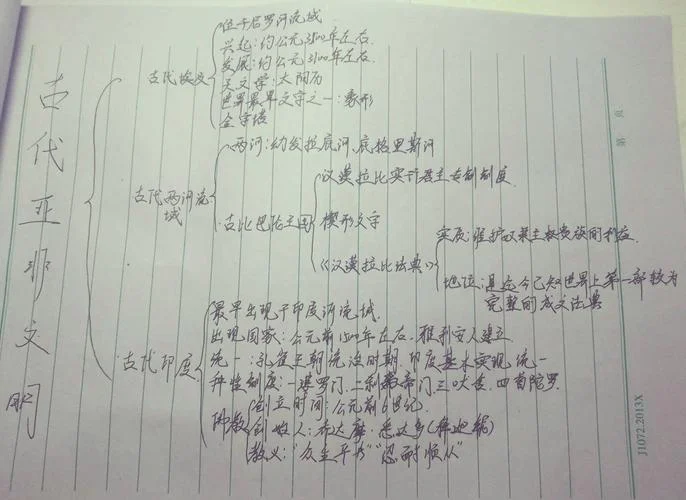 古代亚非文明
古代埃及
位于尼罗河流域
兴起:约公元3500年左右.
发展:约公元3100年左右.
天文学:太阳历
世界最早文字之一:象形
金字塔
古代两河流域
两河:幼发拉底河、底格里斯河
古比巴伦王国
汉漠拉比实行君主专制制度.
楔形文字
《汉漠拉比法典》
实质:维护奴隶主权贵族的利益.
地位:是迄今已知世界上第一部较为
完整的成文法典
古代印度
最早出现于印度河流域.
出现国家:公元前1500年左右.雅利安人建立
统一:孔雀王朝统治时期.印度基本实现统一
种姓制度:一婆罗门、二刹帝利门、三吠舍、四首陀罗.
佛教
创立时间:公元前6世纪.
创始人:乔达摩·悉达多(释迦牟)
教义:"众生平等""忍耐顺从"
第 页
J1072.2013X